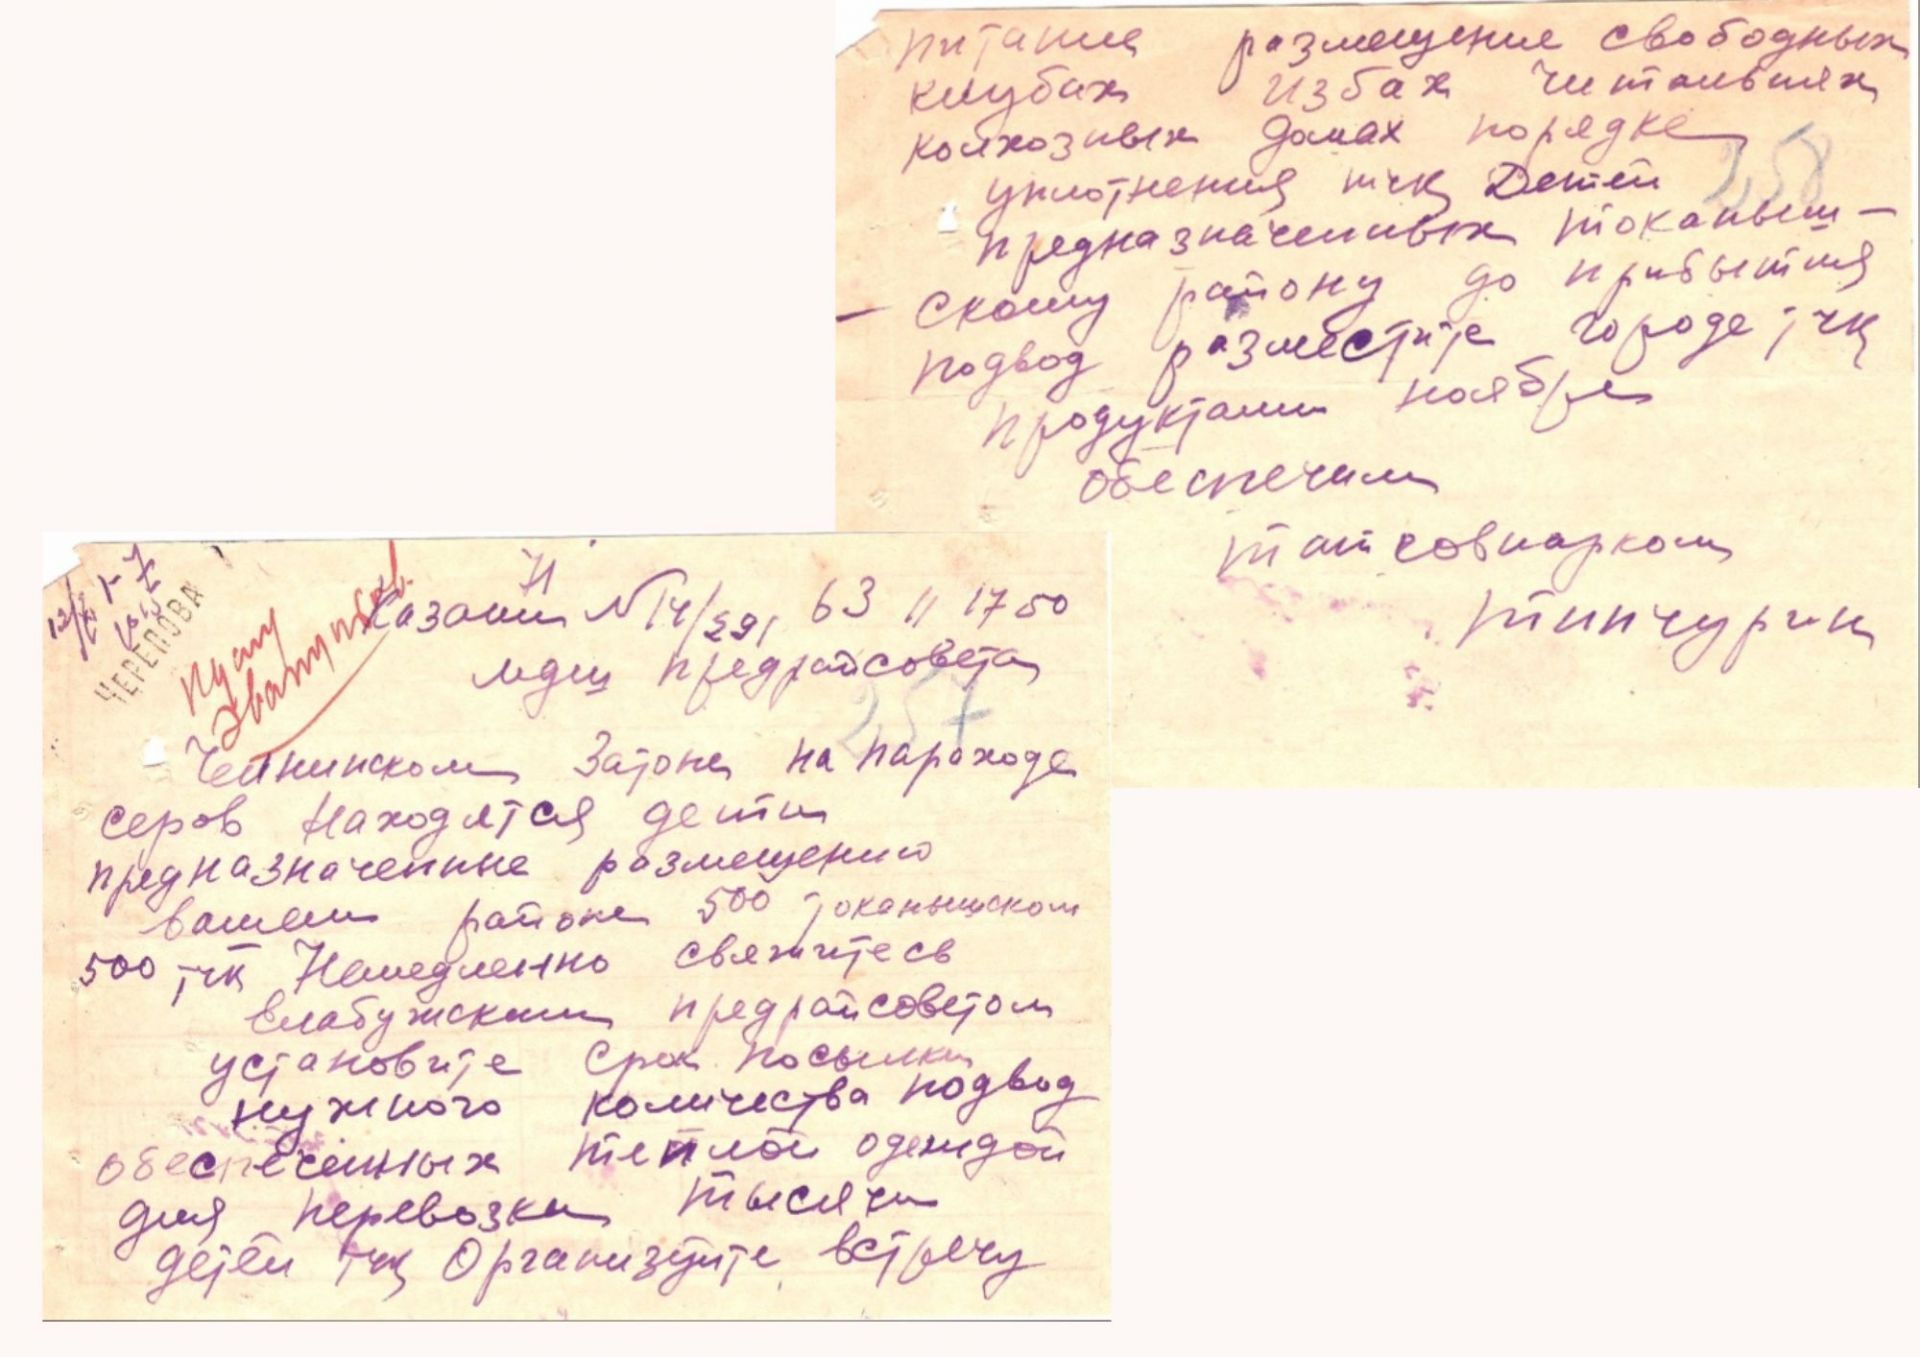 Казани №14/291 63 11 1750
мдщ предрайсовета
257
ЧЕРЕПОВА
Челнинском Затоне на пароходе
серов находятся дети
предназначенные размещению
вашем районе 500 токанышском
500 тчк Немедленно свяжитесь
елабужским предрайсоветом
установите срок посылки
нужного количества подвод
обеспеченных теплой одеждой
для перевозки тысячи
детей тчк Организуйте встречу
питание размещение свободных
клубах избах читальнях
колхозных домах порядке
258
уплотнения тчк Детей
предназначенных токаныш-
скому району до прибытия
подвод разместите городе тчк
продуктами ноябре
обеспечим
татсовнарком
тинчурин